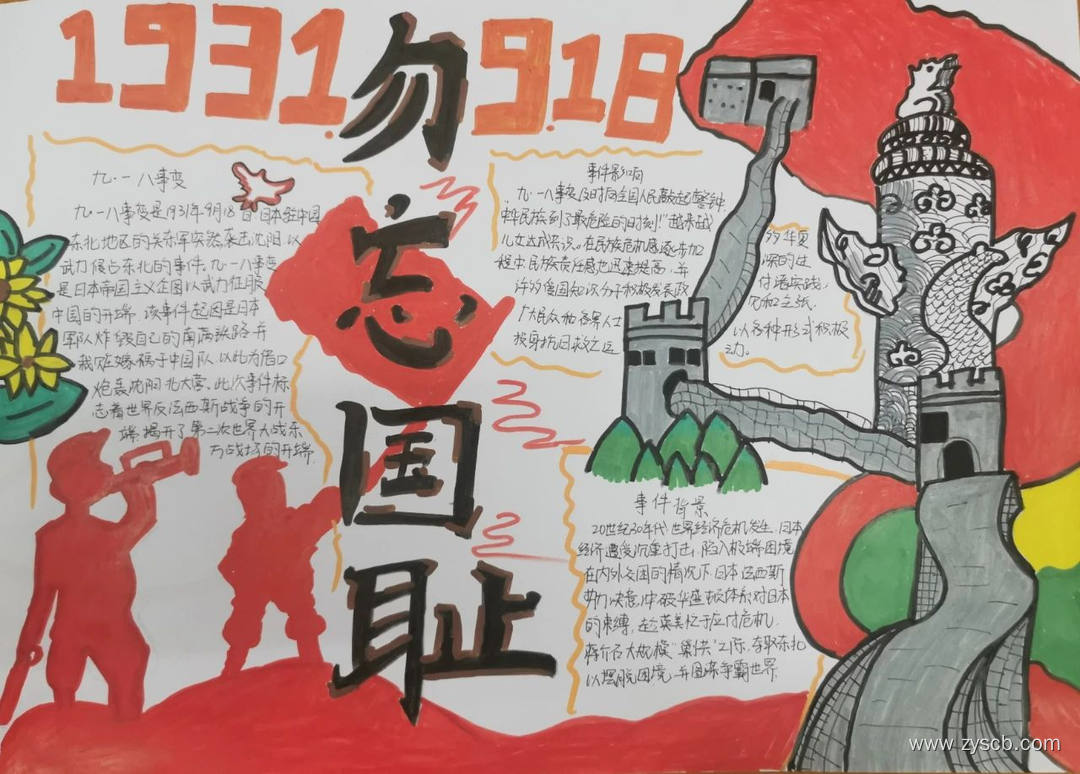 1931.
9.18
勿
忘
国
耻
九·一八事变
九·一八事变是1931年9月18日日本驻中国
东北地区的关东军突然袭击沈阳以
武力侵占东北的事件。九一八事变
是日本帝国主义企图以武力征服
中国的开端。该事件起因是日本
军队炸毁自己的南满铁路并
栽赃嫁祸于中国队以此为借口
炮轰沈阳北大营。此次事件标
志着世界反法西斯战争的开
端揭开了第二次世界大战东
方战场的开端
事件影响
九·一八事变及时向全国人民敲起警钟
中华民族到了最危险的时刻!"越来越
儿女达成共识。在民族危机感逐步加
程中民族责任感也迅速提高,并
许多爱国知识分子积极
广大民众和各界人士
投身抗日救亡运
多华夏
深的过
付诸实践
以各种形式积极
动。
事件背景
20世纪30年代世界经济危机发生,日本
经济遭受沉重打击,陷入极端困境
在内外交困的情况下日本法西斯
势力决意冲破华盛顿体系对日本
的束缚,趁英美忙于应付危机
蒋介石大规模"剿共"之际,夺取东北
以摆脱困境,并图谋争霸世界.
www.zyscb.com